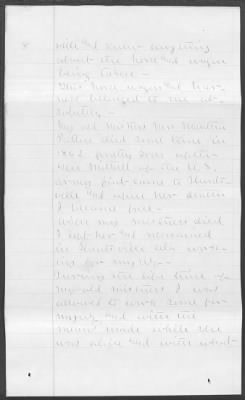 8
will not know anything
about the horse and wagon
being taken –
This horse wagon and har-
ness belonged to me ab-
solutely –
My old mistress Mrs
died some time in
1862 pretty soon after
the U.S.
army first came to Hunts-
ville and upon her death
I became free –
When my mistress died
I left her and remained
in Huntsville city work-
ing for myself –
During the life time of
my old mistress I was
allowed to work some for
myself and with the
money made while she
was alive and with what